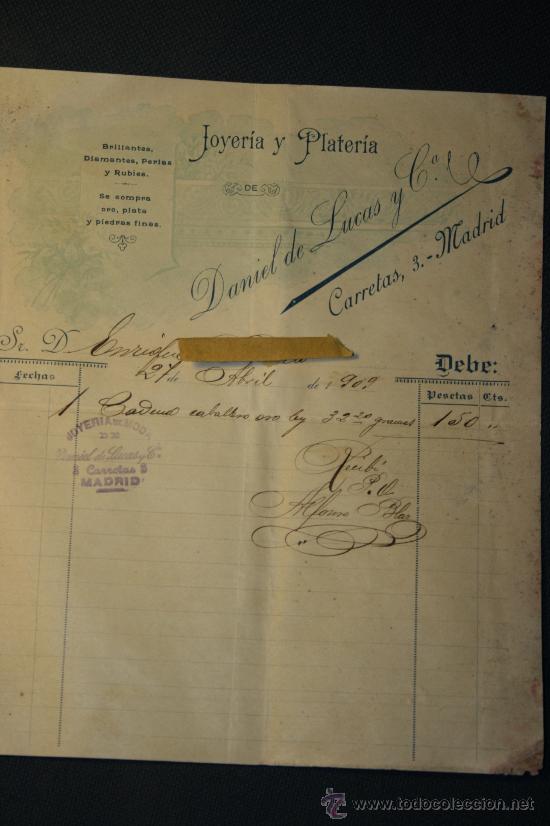 Joyería y Platería
DE
Daniel de Lucas y Cª
Carretas, 3.-Madrid
Brillantes,
Diamantes, Perlas
y Rubíes.
Se compra
oro, plata
y piedras finas.
Sr. D. Enrique
27 de Abril de 1909
Debe:
Fechas
Pesetas Cts.
1 Cadena caballero oro ley 32 20 gramos 150 "
JOYERIA DE MODA
DE
Daniel de Lucas y C.ª
3 Carretas 3
MADRID
Recibí
P. O.
Alfonso
todocoleccion
http://www.todocoleccion.net